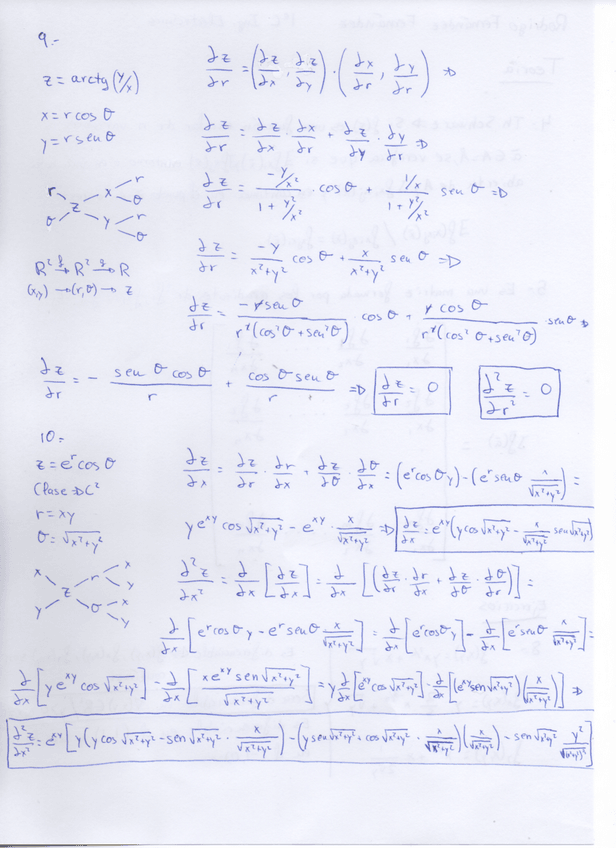 9.-
z = arctg(y/x)
x = r cos θ
y = r sen θ
∂z/∂r = (∂z/∂x, ∂z/∂y) · (∂x/∂r, ∂y/∂r) ⇒
∂z/∂r = ∂z/∂x · ∂x/∂r + ∂z/∂y · ∂y/∂r ⇒
∂z/∂r = (-y/x²)/(1 + y²/x²) · cos θ + (1/x)/(1 + y²/x²) sen θ ⇒
r x r
θ z θ
y r
θ
∂z/∂r = -y/(x²+y²) cos θ + x/(x²+y²) sen θ ⇒
R² → R² → R
(x,y) → (r,θ) → z
∂z/∂r = -r sen θ/(r²(cos² θ + sen² θ)) cos θ + r cos θ/(r²(cos² θ + sen² θ)) sen θ ⇒
∂z/∂r = - sen θ cos θ/r + cos θ sen θ/r ⇒ ∂z/∂r = 0 ∂²z/∂r² = 0
10.-
z = e^r cos θ
Clase ⇒ C²
r = xy
θ = √(x²+y²)
∂z/∂x = ∂z/∂r · ∂r/∂x + ∂z/∂θ · ∂θ/∂x = (e^r cos θ y) - (e^r sen θ x/√(x²+y²)) =
y e^xy cos √(x²+y²) - e^xy · x/√(x²+y²) ⇒ ∂z/∂x = e^xy (y cos √(x²+y²) - x/√(x²+y²) sen √(x²+y²))
x r x
y z y
θ x
y
∂²z/∂x² = ∂/∂x [∂z/∂x] = ∂/∂x [(∂z/∂r · ∂r/∂x + ∂z/∂θ · ∂θ/∂r)] =
∂/∂x [e^r cos θ y - e^r sen θ · x/√(x²+y²)] = ∂/∂x [e^r cos θ y] - ∂/∂x [e^r sen θ x/√(x²+y²)] =
∂/∂x [y e^xy cos √(x²+y²)] - ∂/∂x [x e^xy sen √(x²+y²)/√(x²+y²)] = y ∂/∂x [e^xy cos √(x²+y²)] - ∂/∂x [(e^xy sen √(x²+y²))(x/√(x²+y²))] ⇒
∂²z/∂x² = e^xy [y(y cos √(x²+y²) - sen √(x²+y²) · x/√(x²+y²)) - (y sen √(x²+y²) + cos √(x²+y²) · x/√(x²+y²))(x/√(x²+y²)) - sen √(x²+y²) y²/√(x²+y²)³]